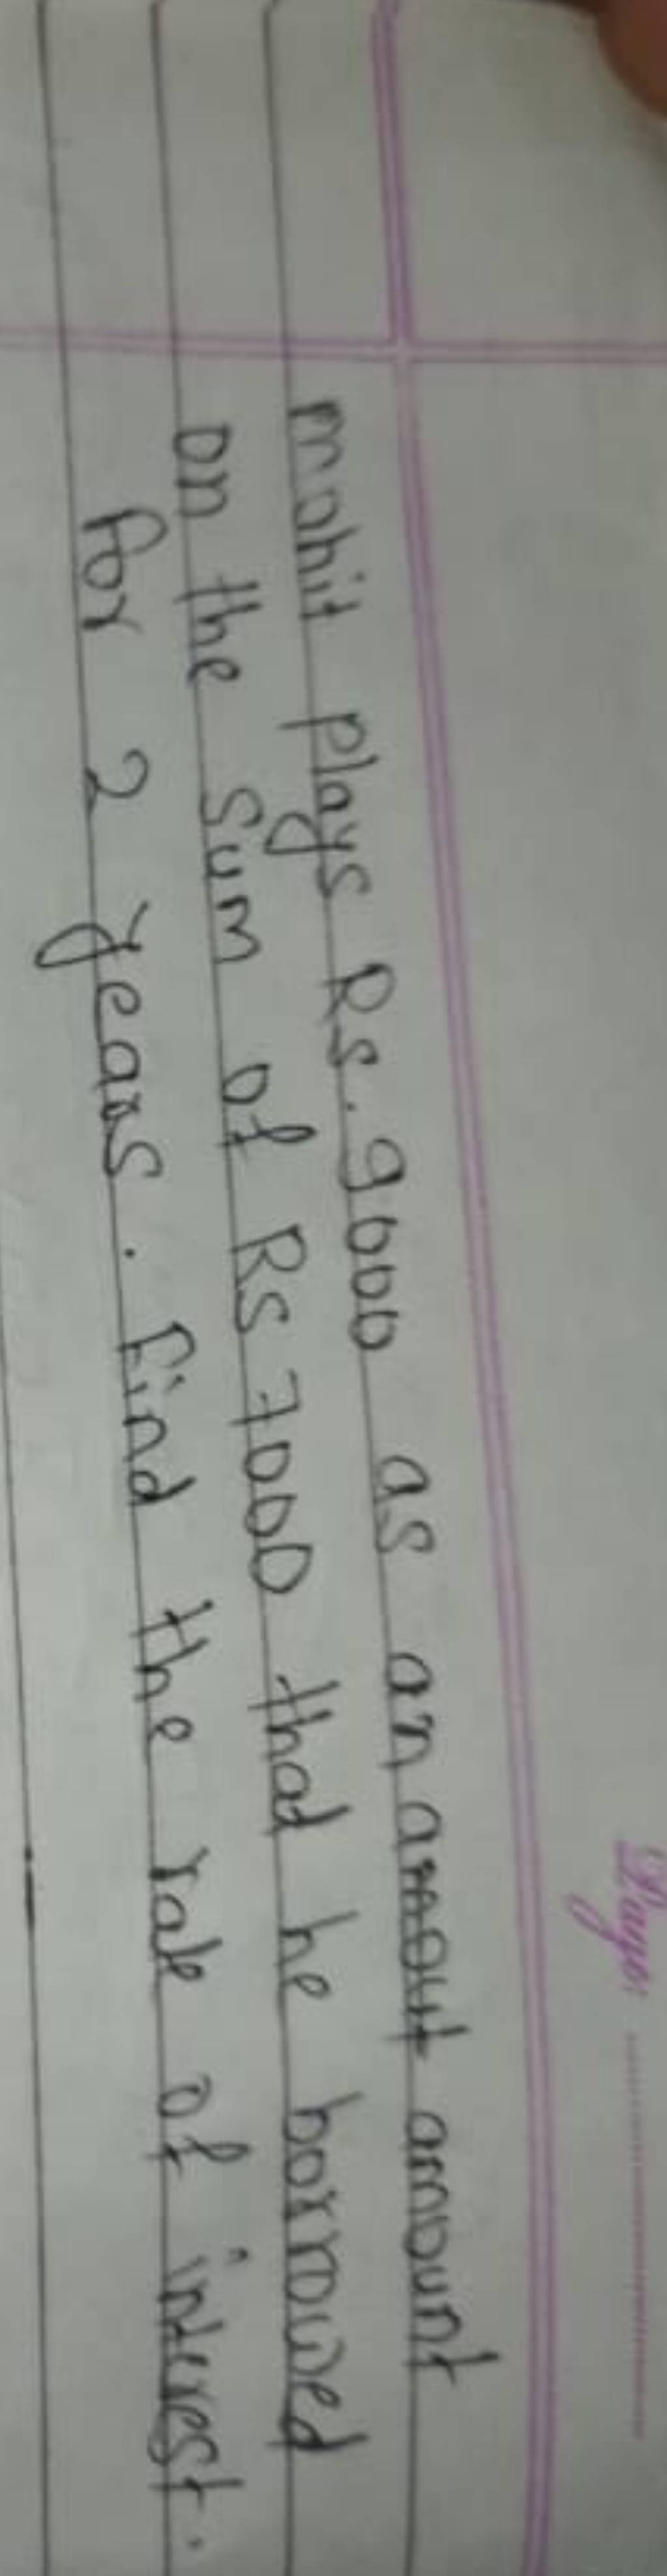 Page:
mohit plays Rs. 9000 as an amout amount
on the sum of RS 7000 that he borrowed
for 2 years. find the rate of interest.